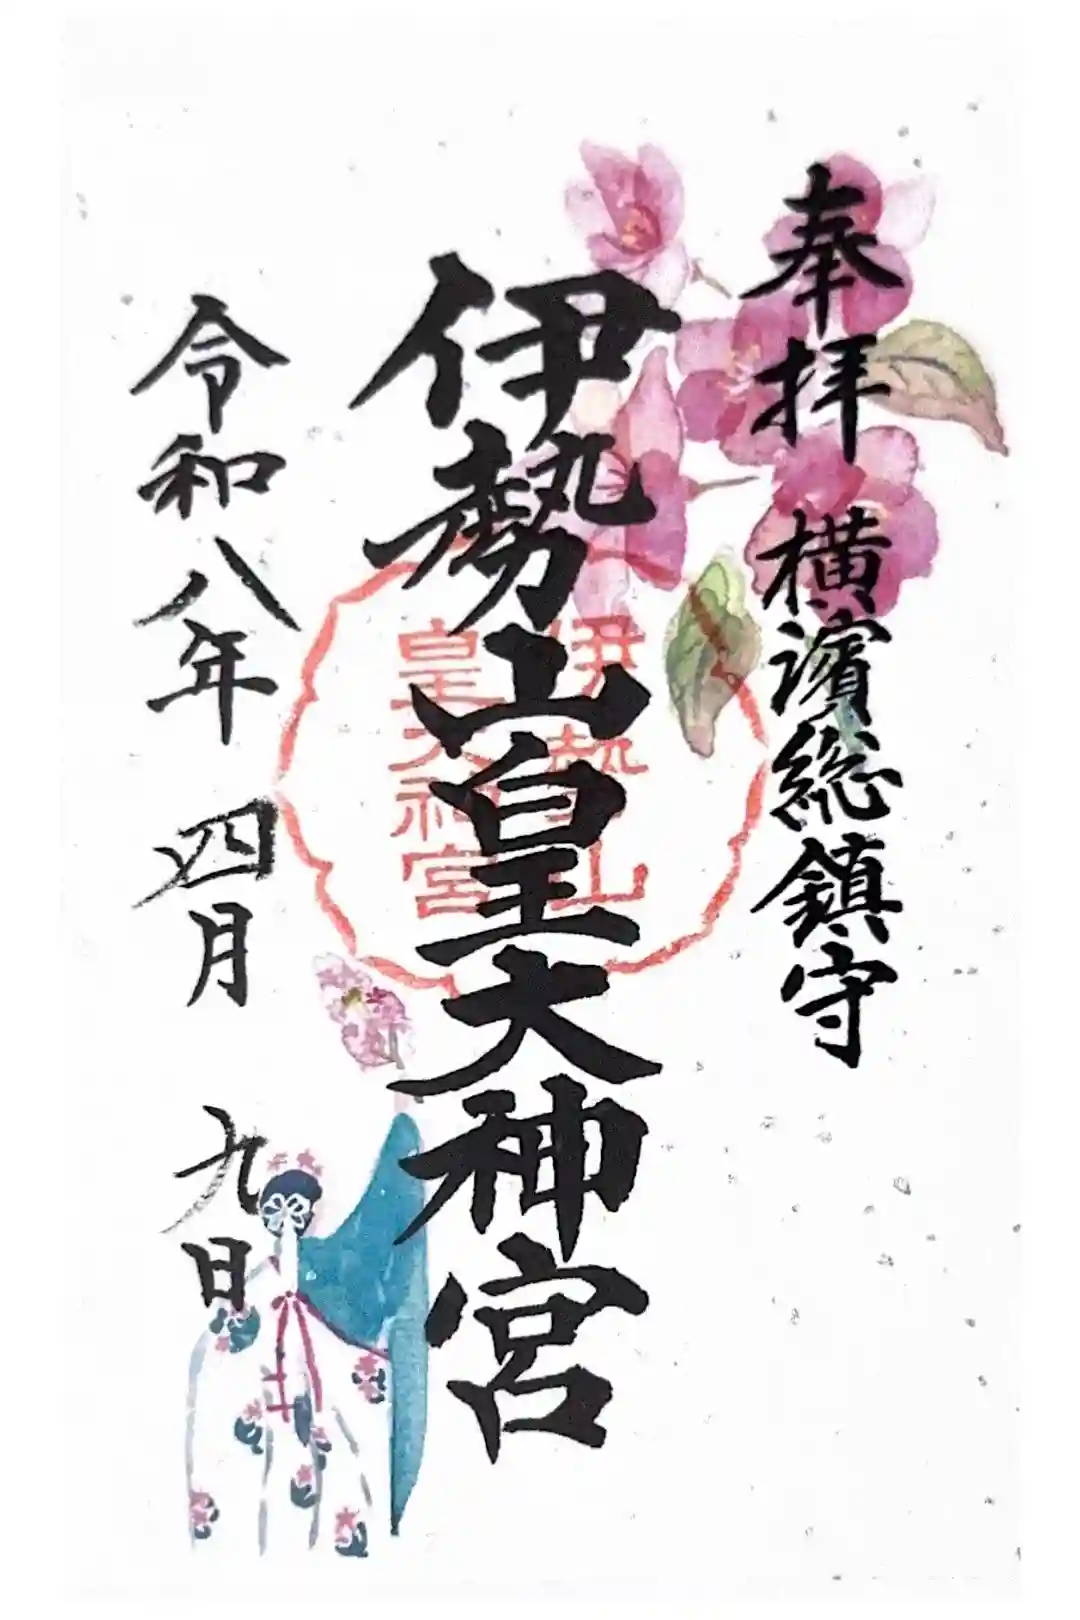 奉拝 横濱総鎮守
伊勢山皇大神宮
伊勢山
皇大神宮
令和八年 四月 九日